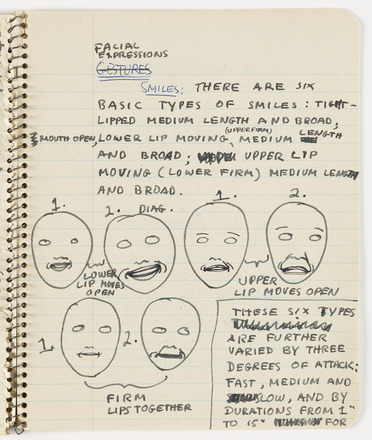 FACIAL
EXPRESSIONS
GESTURES
SMILES: THERE ARE SIX
BASIC TYPES OF SMILES: TIGHT-
LIPPED MEDIUM LENGTH AND BROAD;
MOUTH OPEN, LOWER LIP MOVING, (UPPER FIRM) MEDIUM LENGTH
AND BROAD; UPPER LIP
MOVING (LOWER FIRM) MEDIUM LENGTH
AND BROAD.
1. 2. DIAG. 1. 2.
LOWER
LIP MOVES
OPEN
UPPER
LIP MOVES OPEN
1. 2.
FIRM
LIPS TOGETHER
THESE SIX TYPES
ARE FURTHER
VARIED BY THREE
DEGREES OF ATTACK:
FAST, MEDIUM AND
SLOW, AND BY
DURATIONS FROM 1"
TO 15" FOR